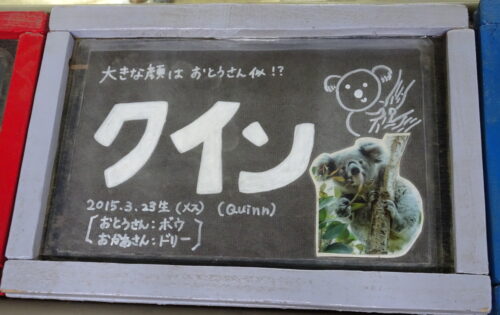 大きな顔は おとうさん似!?
クイン
2015.3.23生(メス) (Quinn)
おとうさん:ボウ
おかあさん:ドリー